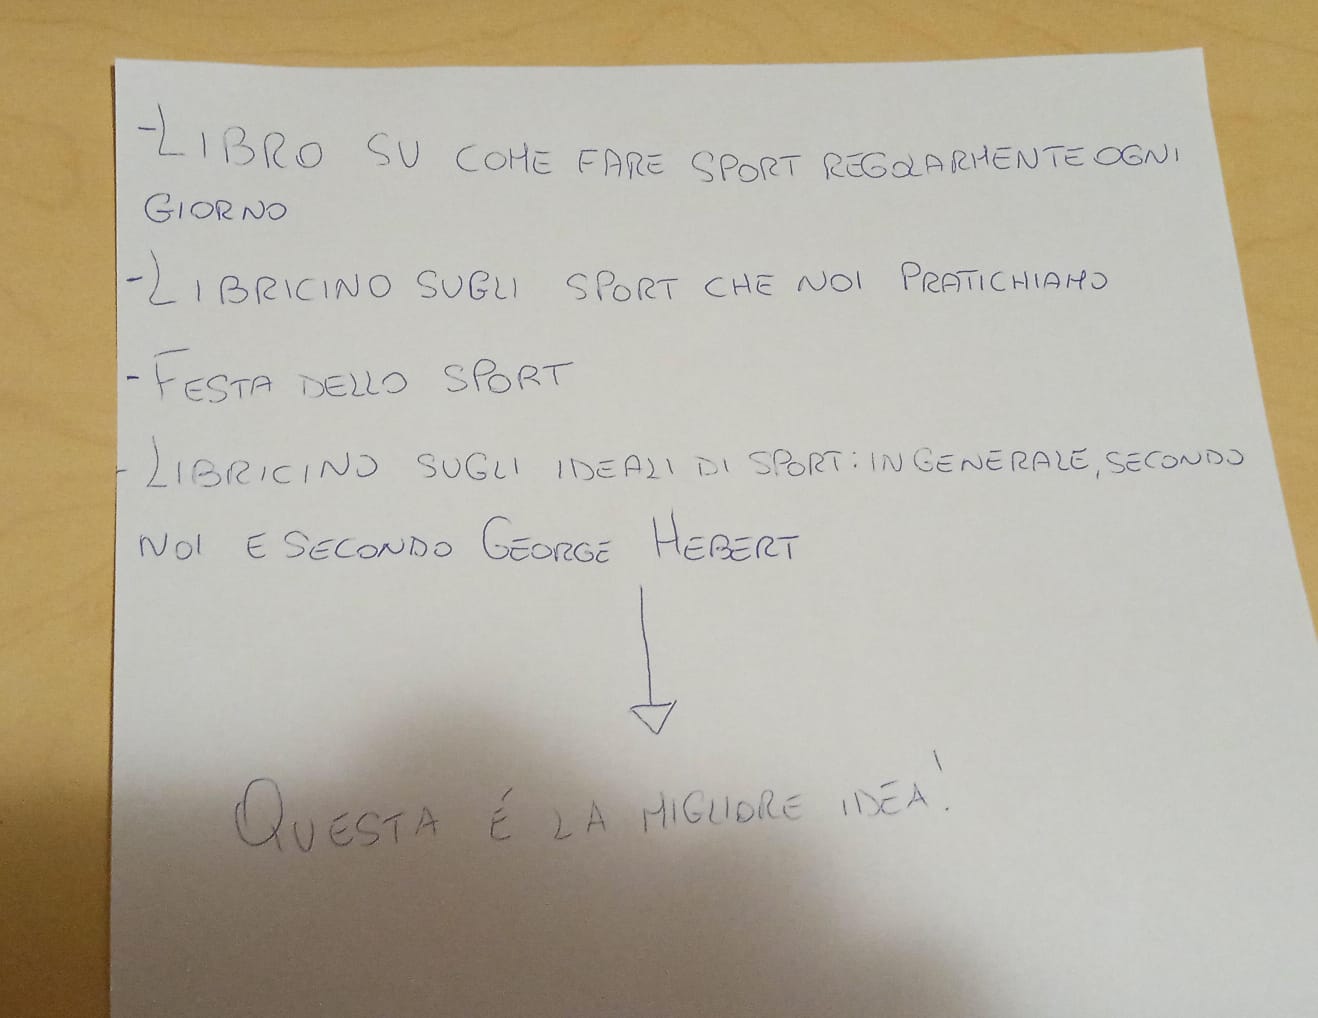 -LIBRO SU COME FARE SPORT REGOLARMENTE OGNI
GIORNO
-LIBRICINO SUGLI SPORT CHE NOI PRATICHIAMO
-FESTA DELLO SPORT
-LIBRICINO SUGLI IDEALI DI SPORT: IN GENERALE, SECONDO
NOI E SECONDO GEORGE HEBERT
QUESTA É LA MIGLIORE IDEA!